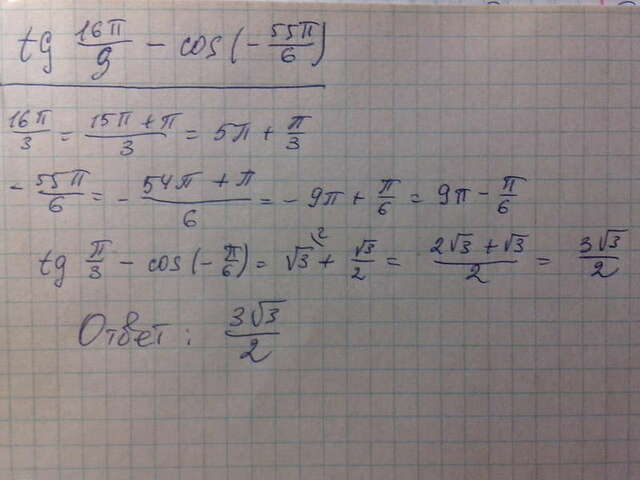 tg 16π/9 - cos(-55π/6)
16π/3 = (15π+π)/3 = 5π + π/3
-55π/6 = - (54π+π)/6 = -9π + π/6 = 9π - π/6
tg π/3 - cos(-π/6) = √3 ² + √3/2 = (2√3+√3)/2 = 3√3/2
Ответ: 3√3/2